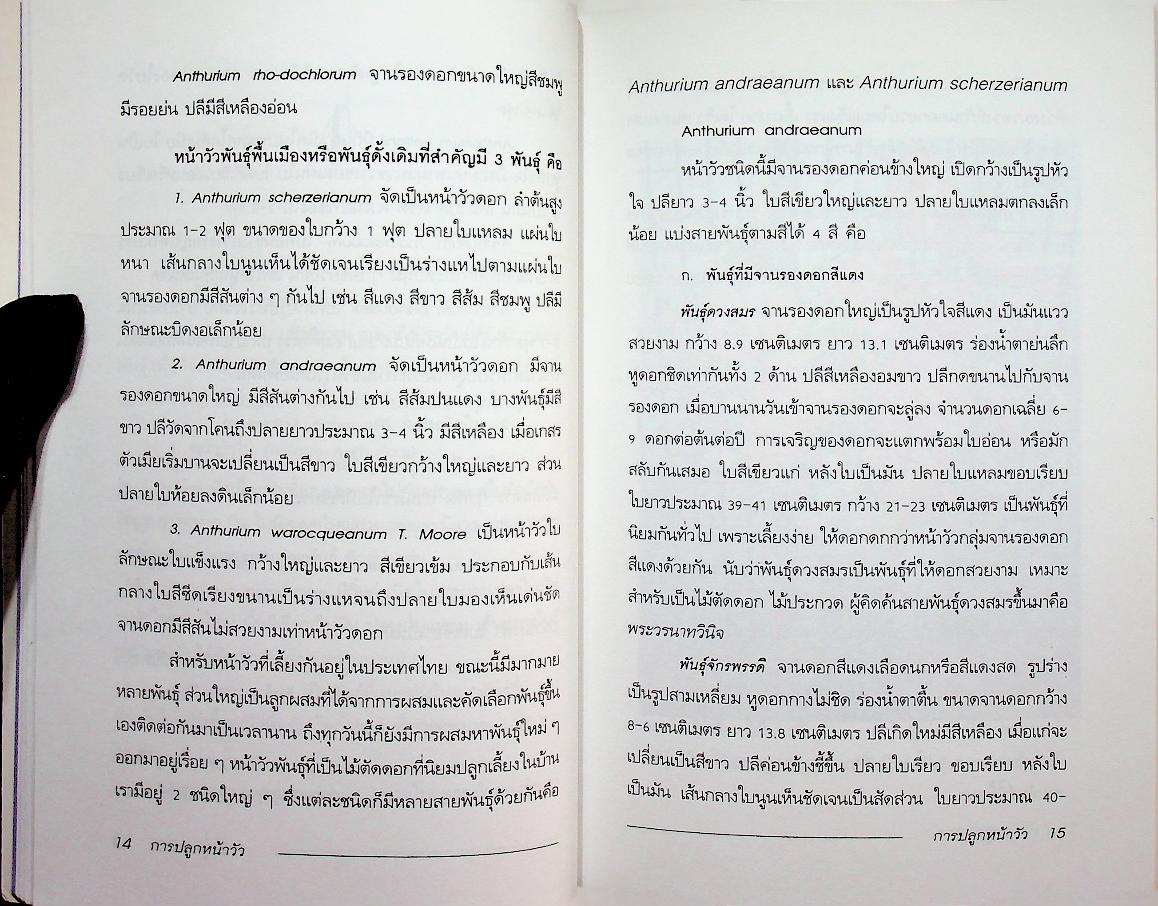 Anthurium rho-dochlorum จานรองดอกขนาดใหญ่สีชมพู
มีรอยย่น ปลีมีสีเหลืองอ่อน
หน้าวัวพันธุ์พื้นเมืองหรือพันธุ์ดั้งเดิมที่สำคัญมี 3 พันธุ์ คือ
1. Anthurium scherzerianum จัดเป็นหน้าวัวดอก ลำต้นสูง
ประมาณ 1-2 ฟุต ขนาดของใบกว้าง 1 ฟุต ปลายใบแหลม แผ่นใบ
หนา เส้นกลางใบนูนเห็นได้ชัดเจนเรียงเป็นร่างแหไปตามแผ่นใบ
จานรองดอกมีสีสันต่าง ๆ กันไป เช่น สีแดง สีขาว สีส้ม สีชมพู ปลีมี
ลักษณะบิดงอเล็กน้อย
2. Anthurium andraeanum จัดเป็นหน้าวัวดอก มีจาน
รองดอกขนาดใหญ่ มีสีสันต่างกันไป เช่น สีส้มปนแดง บางพันธุ์มีสี
ขาว ปลีวัดจากโคนถึงปลายยาวประมาณ 3-4 นิ้ว มีสีเหลือง เมื่อเกสร
ตัวเมียเริ่มบานจะเปลี่ยนเป็นสีขาว ใบสีเขียวกว้างใหญ่และยาว ส่วน
ปลายใบห้อยลงดินเล็กน้อย
3. Anthurium warocqueanum T. Moore เป็นหน้าวัวใบ
ลักษณะใบแข็งแรง กว้างใหญ่และยาว สีเขียวเข้ม ประกอบกับเส้น
กลางใบสีซีดเรียงขนานเป็นร่างแหจนถึงปลายใบมองเห็นเด่นชัด
จานดอกมีสีสันไม่สวยงามเท่าหน้าวัวดอก
สำหรับหน้าวัวที่เลี้ยงกันอยู่ในประเทศไทย ขณะนี้มีมากมาย
หลายพันธุ์ ส่วนใหญ่เป็นลูกผสมที่ได้จากการผสมและคัดเลือกพันธุ์ขึ้น
เองติดต่อกันมาเป็นเวลานาน ถึงทุกวันนี้ก็ยังมีการผสมหาพันธุ์ใหม่ ๆ
ออกมาอยู่เรื่อย ๆ หน้าวัวพันธุ์ที่เป็นไม้ตัดดอกที่นิยมปลูกเลี้ยงในบ้าน
เรามีอยู่ 2 ชนิดใหญ่ ๆ ซึ่งแต่ละชนิดก็มีหลายสายพันธุ์ด้วยกันคือ
14 การปลูกหน้าวัว
Anthurium andraeanum และ Anthurium scherzerianum
Anthurium andraeanum
หน้าวัวชนิดนี้มีจานรองดอกค่อนข้างใหญ่ เปิดกว้างเป็นรูปหัว
ใจ ปลียาว 3-4 นิ้ว ใบสีเขียวใหญ่และยาว ปลายใบแหลมตกลงเล็ก
น้อย แบ่งสายพันธุ์ตามสีได้ 4 สี คือ
ก. พันธุ์ที่มีจานรองดอกสีแดง
พันธุ์ดวงสมร จานรองดอกใหญ่เป็นรูปหัวใจสีแดง เป็นมันแวว
สวยงาม กว้าง 8.9 เซนติเมตร ยาว 13.1 เซนติเมตร ร่องน้ำตาย่นลึก
หูดอกชิดเท่ากันทั้ง 2 ด้าน ปลีสีเหลืองอมขาว ปลีกดขนานไปกับจาน
รองดอก เมื่อบานนานวันเข้าจานรองดอกจะลู่ลง จำนวนดอกเฉลี่ย 6-
9 ดอกต่อต้นต่อปี การเจริญของดอกจะแตกพร้อมใบอ่อน หรือมัก
สลับกันเสมอ ใบสีเขียวแก่ หลังใบเป็นมัน ปลายใบแหลมขอบเรียบ
ใบยาวประมาณ 39-41 เซนติเมตร กว้าง 21-23 เซนติเมตร เป็นพันธุ์ที่
นิยมกันทั่วไป เพราะเลี้ยงง่าย ให้ดอกดกกว่าหน้าวัวกลุ่มจานรองดอก
สีแดงด้วยกัน นับว่าพันธุ์ดวงสมรเป็นพันธุ์ที่ให้ดอกสวยงาม เหมาะ
สำหรับเป็นไม้ตัดดอก ไม้ประกวด ผู้คิดค้นสายพันธุ์ดวงสมรขึ้นมาคือ
พระวรนาทวินิจ
พันธุ์จักรพรรดิ จานดอกสีแดงเลือดนกหรือสีแดงสด รูปร่าง
เป็นรูปสามเหลี่ยม หูดอกกางไม่ชิด ร่องน้ำตาตื้น ขนาดจานดอกกว้าง
8-6 เซนติเมตร ยาว 13.8 เซนติเมตร ปลีเกิดใหม่มีสีเหลือง เมื่อแก่จะ
เปลี่ยนเป็นสีขาว ปลีค่อนข้างชี้ขึ้น ปลายใบเรียว ขอบเรียบ หลังใบ
เป็นมัน เส้นกลางใบนูนเห็นชัดเจนเป็นสัดส่วน ใบยาวประมาณ 40-
การปลูกหน้าวัว 15